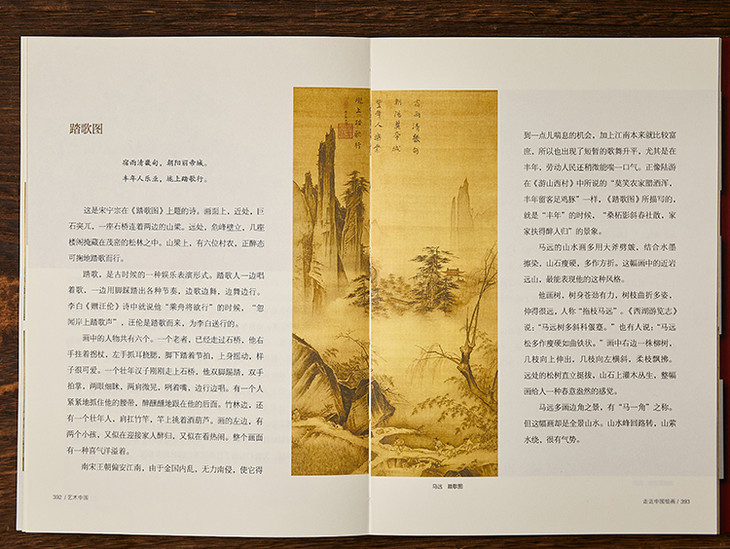 踏歌图
宿雨清畿甸，朝阳丽帝城。
丰年人乐业，垅上踏歌行。
这是宋宁宗在《踏歌图》上题的诗。画面上，近处，巨
石突兀，一座石桥连着两边的山梁。远处，危峰壁立，几座
楼阁掩藏在茂密的松林之中。山梁上，有六位村农，正醉态
可掬地踏歌而行。
踏歌，是古时候的一种娱乐表演形式。踏歌人一边唱
着歌，一边用脚踩踏出各种节奏，边歌边舞，边舞边行。
李白《赠汪伦》诗中就说他“乘舟将欲行”的时候，“忽
闻岸上踏歌声”，汪伦是踏歌而来，为李白送行的。
画中的人物共有六个。一个老者，已经走过石桥，他右
手拄着拐杖，左手抓耳挠腮，脚下踏着节拍，上身摇动，样
子很可爱。一个壮年汉子刚刚走上石桥，他双脚踢踏，双手
拍掌，两眼细眯，两肩微晃，咧着嘴，边行边唱。有一个人
紧紧地抓住他的腰带，醉醺醺地跟在他的后面。竹林边，还
有一个壮年人，肩扛竹竿，竿上挑着酒葫芦，画的左边，有
两个小孩，又似在迎接家人醉归，又似在看热闹。整个画面
有一种喜气洋溢着。
南宋王朝偏安江南，由于金国内乱，无力南侵，使它得
392 / 艺术中国
宿雨清畿甸
朝阳丽帝城
丰年人乐业
垅上踏歌行
马远　踏歌图
到一点儿喘息的机会，加上江南本来就比较富
庶，所以也出现了短暂的歌舞升平，尤其是在
丰年，劳动人民还稍微能喘一口气。正像陆游
在《游山西村》中所说的“莫笑农家腊酒浑，
丰年留客足鸡豚”一样，《踏歌图》所描写的，
就是“丰年”的时候，“桑柘影斜春社散，家
家扶得醉人归”的景象。
马远的山水画多用大斧劈皴，结合水墨
擦染，山石瘦硬，多作方折。这幅画中的近岩
远山，最能表现他的这种风格。
他画树，树身苍劲有力，树枝曲折多姿，
伸得很远，人称“拖枝马远”。《西湖游览志》
说：“马远树多斜科偃蹇。”也有人说：“马远
松多作瘦硬如曲铁状。”画中右边一株柳树，
几枝向上伸出，几枝向左横斜，柔枝飘拂。
远处的松树直立挺拔，山石上灌木丛生，整幅
画给人一种春意盎然的感觉。
马远多画边角之景，有“马一角”之称。
但这幅画却是全景山水。山水峰回路转，山萦
水绕，很有气势。
走近中国绘画 / 393